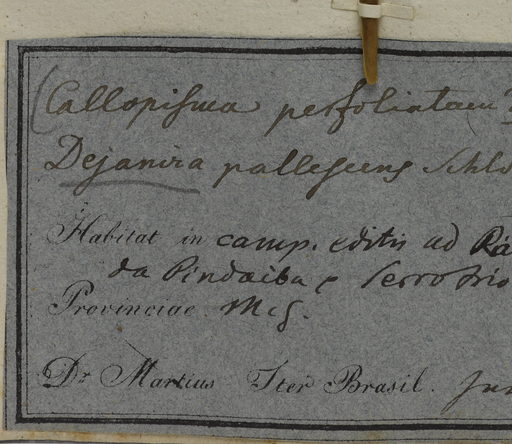 (Callopisma perfoliatum
Dejanira pallescens Schl
Habitat in camp. editis ad
da Pindaiba e Serro frio
Provinciae M. G.
Dr Martius Iter Brasil. Jun